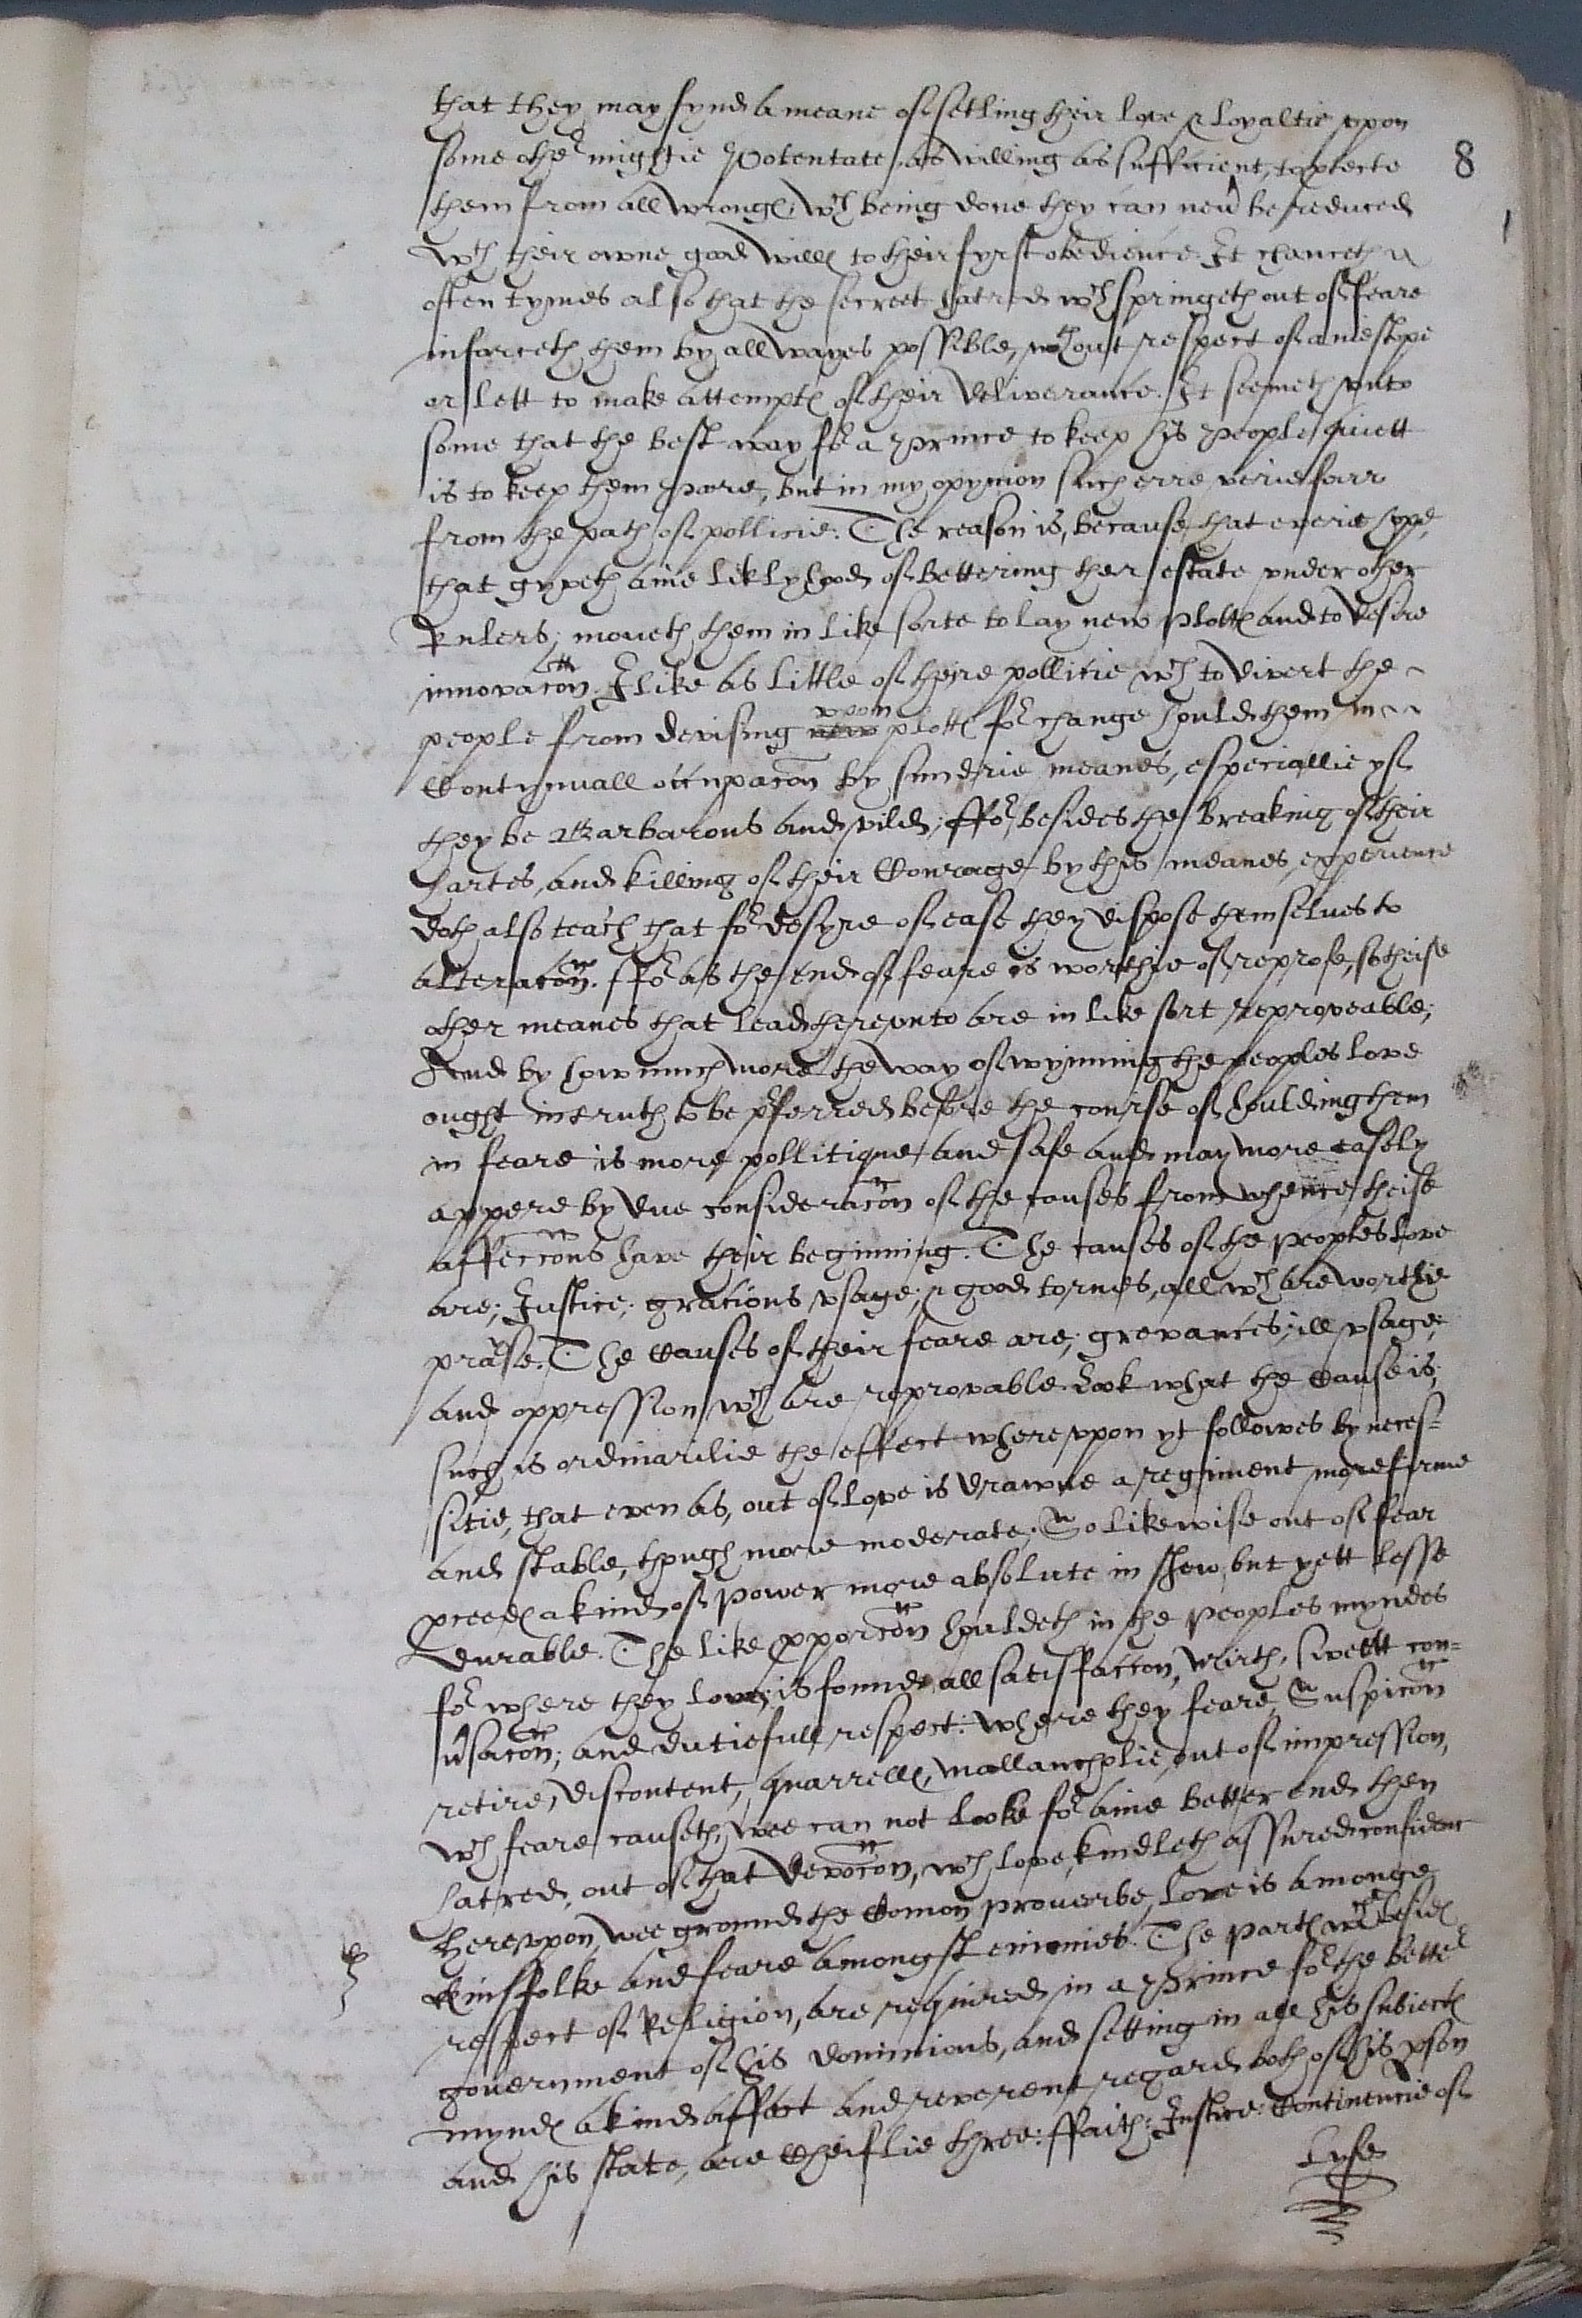 that they may fynd a meane of setling their love & loyaltie vpon
some other mightie Potentate, as willing as sufficient, to ꝓtecte
8
them from all wronges, wch being done they can neu'r be reduced
wth their owne good willes to their fyrst obedience. It chanceth
often tymes also that the secreet hatred wch springeth out of feare
inforceth them by all wayes possible, wthout respect of anie stopp
or lett to make attemptes of their deliverance. It seemeth vnto
some that the best way for a Prince to keep his People quiett
is to keep them poore, but in my opynion such erre verie farr
from the path of pollicie: The reason is, because, that everie hope,
that gyveth anie liklyhood of bettering their estate vnder other
Rulers, moveth them in like sorte to lay new plottes and to desire
innovacōn. I like as little of theire pollicie wch to divert the
people from devising new vpon plottes for change hould them in
Contynuall occupacōn by sundrie meanes, especiallie yf
they be Barbarous and vild; ffor besides the breaking of their
hartes, and killing of their Courage by this meanes, experience
doth also teach that for desyre of ease they dispose themselues to
alteracōn. ffor as the end of feare is worthie of reprofe, so theise
other meanes that lead therevnto are in like sort reproveable;
And by how much more the way of wynning the peoples love
ought in truth to be p'ferred before the course of houlding them
in feare is more pollitique and safe and may more easely
appere by due consideracōn of the causes from whence theise
affeccōns have their beginning. The causes of the peoples love
are; Justice; gracious vsage; & good tornes, all wch are worthie
prayse. The Causes of their feare are; grevances; ill vsage;
and oppression wch are reprovable. Look what the Cause is;
such is ordinarilie the effect wherevpon yt followes by neces=
sitie, that even as, out of love is drawne a regiment more firme
and stable, though more moderate; So likewise out of fear
ꝓceedes a kind of power more absolute in shew, but yett lesse
durable. The like ꝓporcōn houldeth in the peoples myndes
for where they love, is found all satisfaccon, mirth, sweett con=
v'sacōn; and dutiefull respect: where they feare, Suspicōn
retire, discontent, quarrelles, mallancholie, out of impression,
wch feare causeth, wee can not looke for anie better end then
hatred, out of that devocōn, wch love kindleth assured confidenc
herevpon wee ground the Comon proverbe, Love is amonge
kinsfolke and feare amongst enimies. The partes wch besides
respect of Religion, are required in a Prince for the better
government of his dominions, and setting in all his subiectes
myndes a kind affect and reverent regard both of his ꝑson
and his state, are Cheiflie three: ffaith: Justice: Continencie of
Lyfe